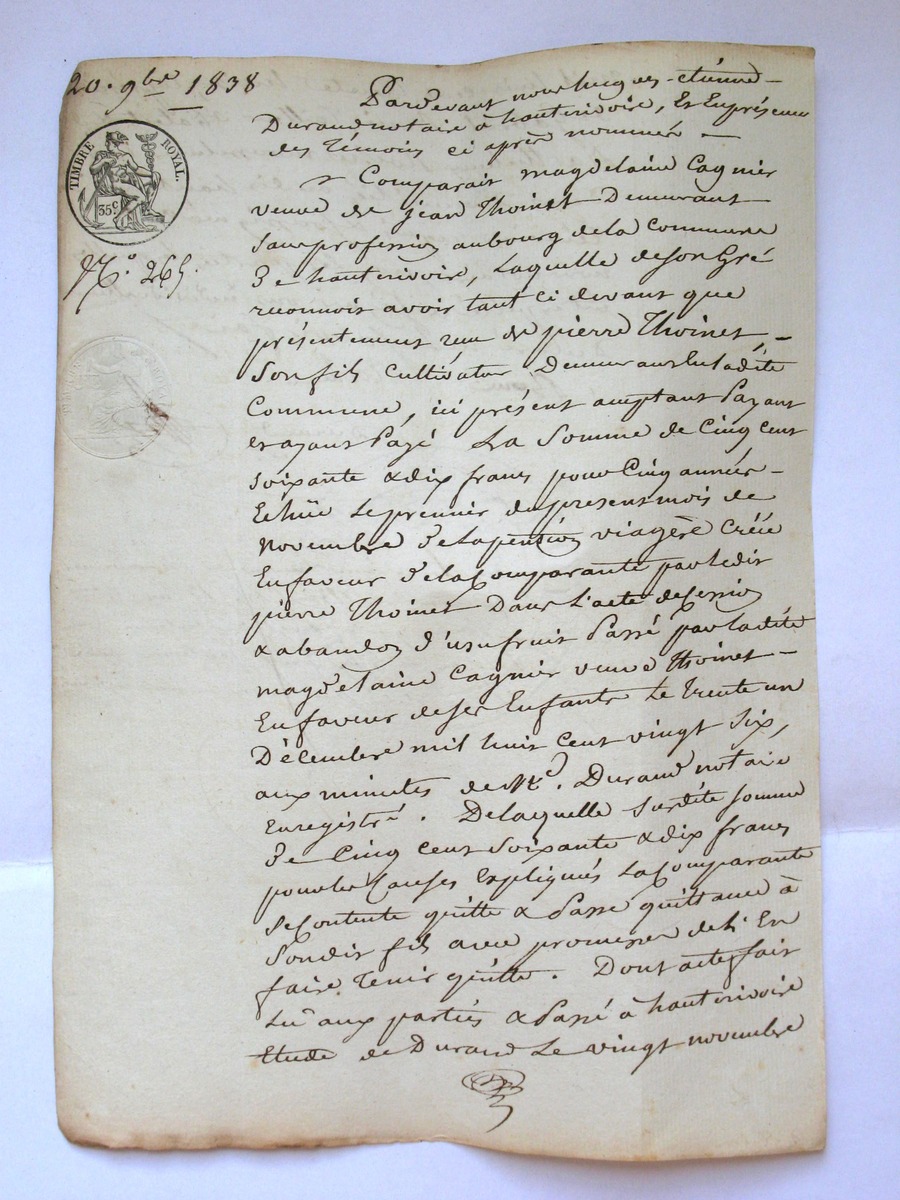 20. 9bre 1838
TIMBRE ROYAL.
35c.
No. 265.
Pardevant nous hugues-étienne-
Durand notaire à hauterivoire, Et En présence
des Témoins ci après nommés -
Comparait magdelaine Cagnier
veuve de jean Thoinet Demeurant
sans profession au bourg de la Commune
De hauterivoire, Laquelle de son Gré
reconnoit avoir tant ci devant que
présentement reçu de pierre Thoinet, -
Son fils Cultivateur Demeurant En ladite
Commune, ici présent acceptant Payant
et ayant Payé La Somme de Cinq Cent
soixante & dix francs pour Cinq années -
Echüe Le premier du présent mois de
Novembre De la pension viagère Créée
En faveur De la Comparante par ledit
pierre Thoinet Dans L'acte de Cession
& abandon D'usufruit Passé par ladite
magdelaine Cagnier veuve Thoinet -
En faveur de ses Enfants Le Trente un
Décembre mil huit Cent vingt Six,
aux minutes de Me. Durand notaire
Enregistré. De laquelle Susdite somme
De Cinq Cent Soixante & dix francs
pour les Causes Expliqués La Comparante
Se Contente quitte & Passe quittance à
Sondit fils avec promesse de L' En
faire Tenir quitte. Dont acte fait
Lu aux parties & Passé à hauterivoire
Etude de Durand Le vingt novembre